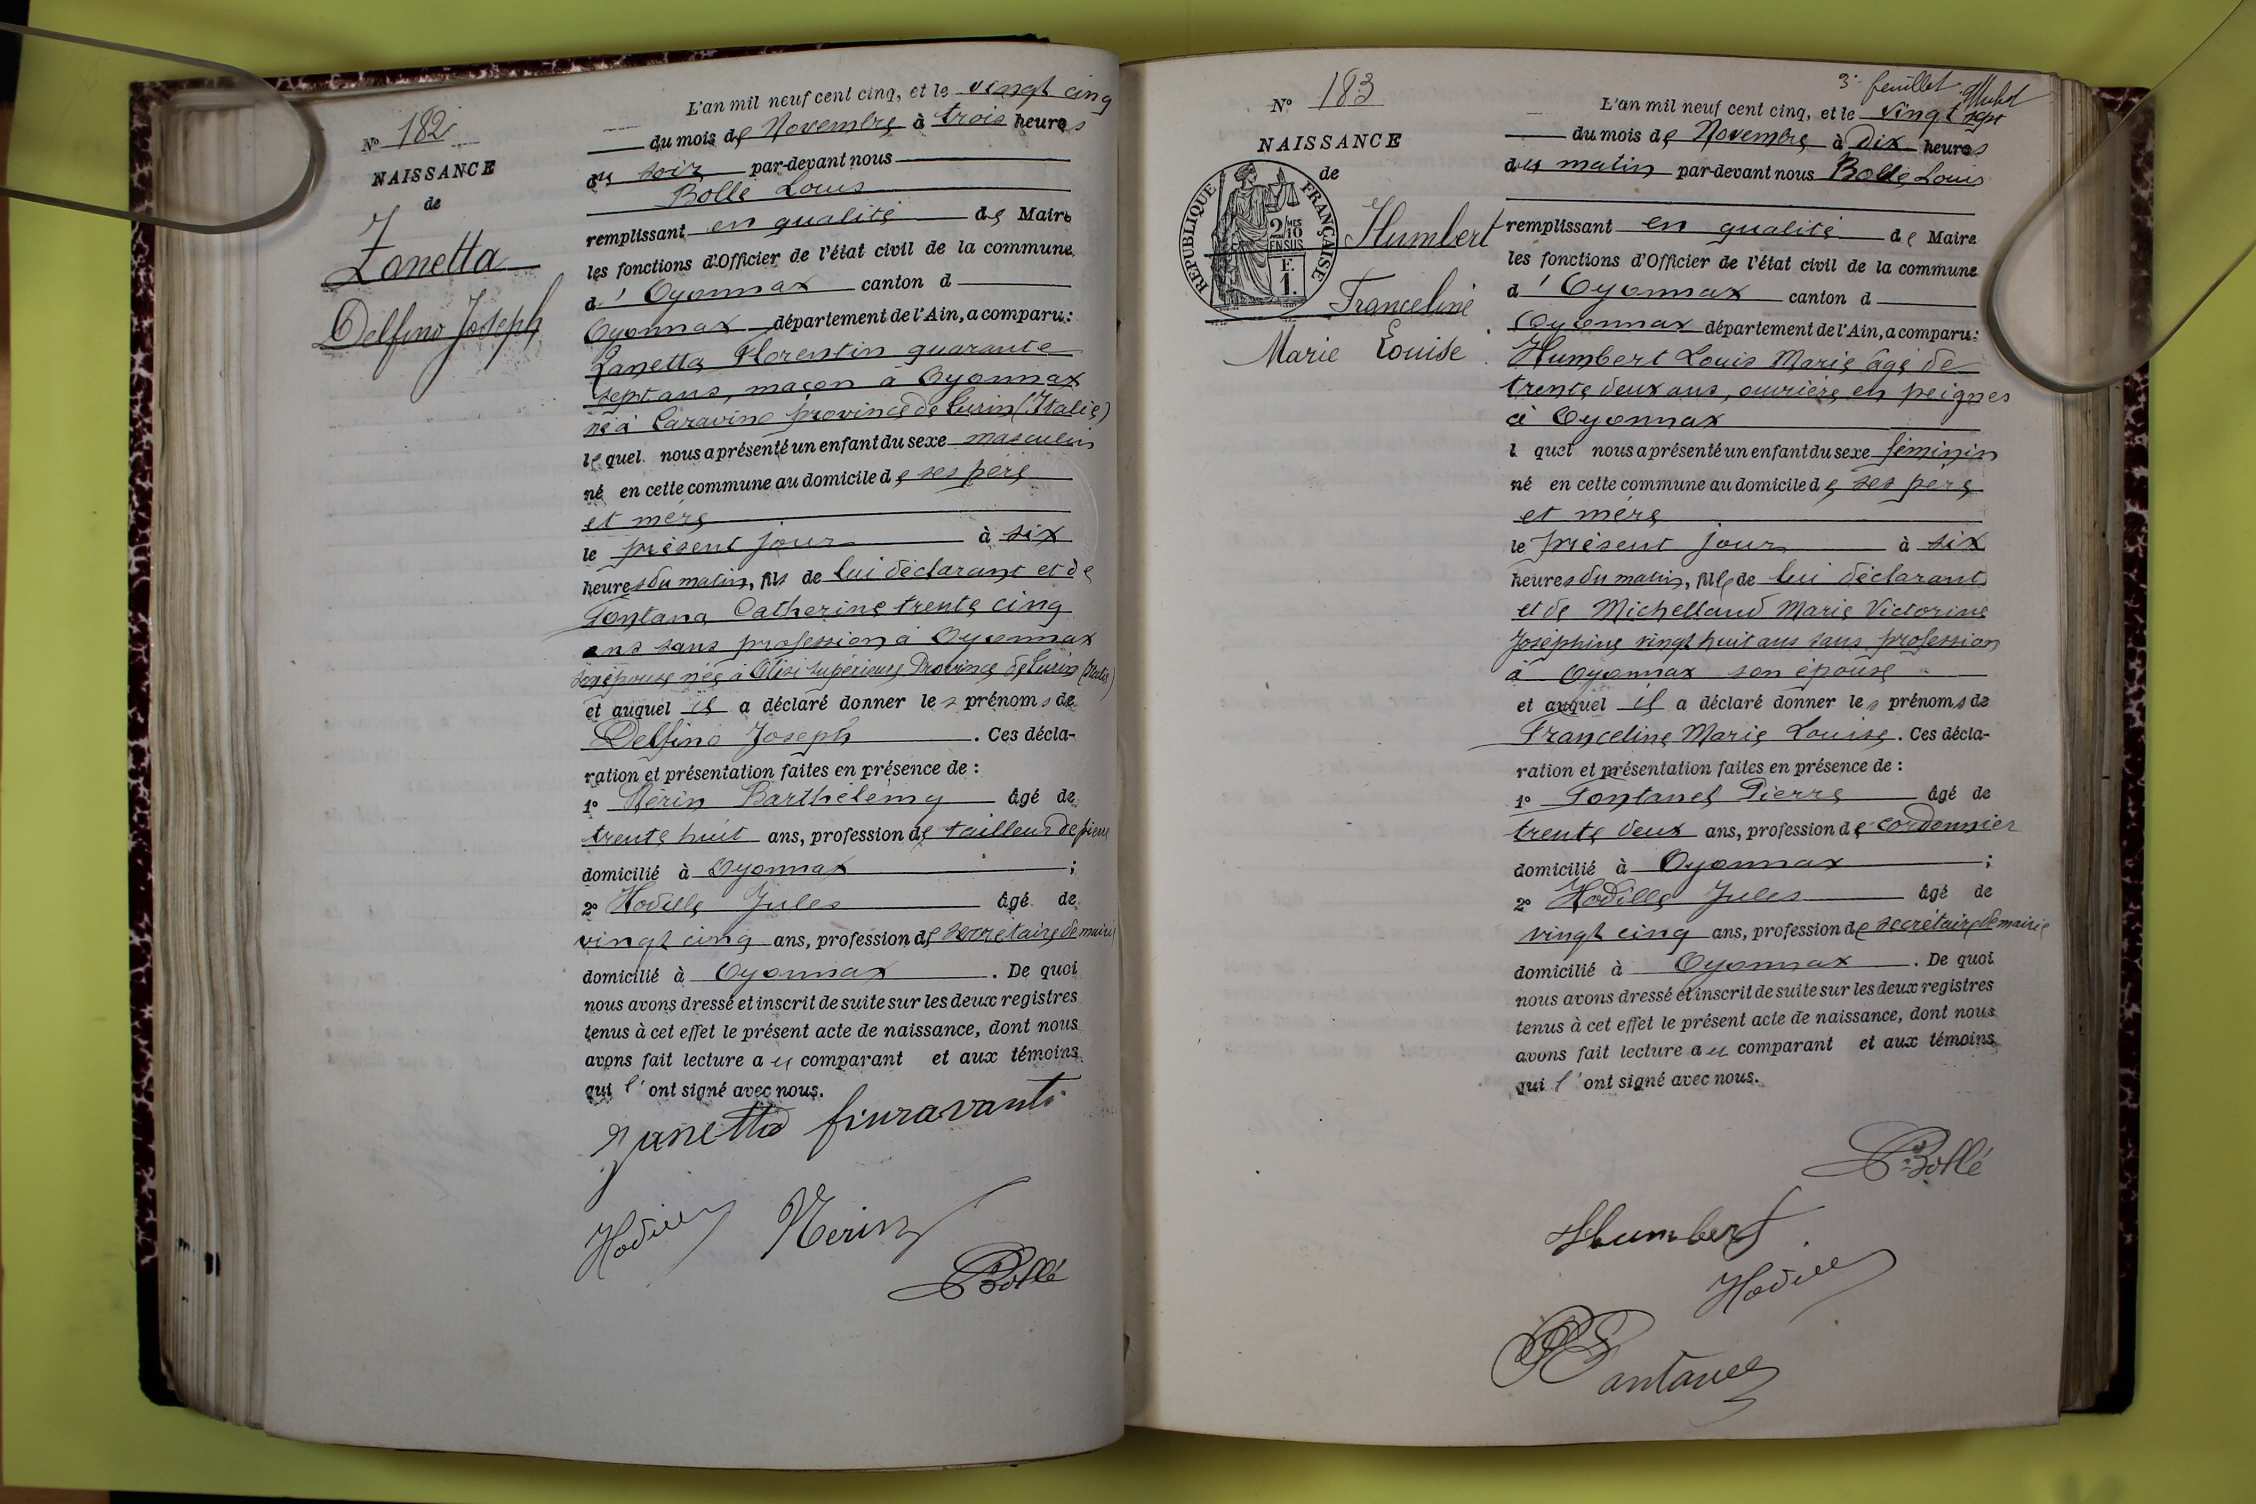 Nº 182
NAISSANCE
de
Zanetta
Delfino Joseph
L'an mil neuf cent cinq, et le vingt cinq
du mois de Novembre à trois heures
du soir par-devant nous
Bollé Louis
remplissant en qualité de Maire
les fonctions d'Officier de l'état civil de la commune
d' Oyonnax canton d
Oyonnax département de l'Ain, a comparu:
Zanetta Florentin quarante
sept ans, maçon à Oyonnax
né à Caravino province de Turin (Italie)
lequel nous a présenté un enfant du sexe masculin
né en cette commune au domicile de ses père
et mère
le présent jour à six
heures du matin, fils de lui déclarant et de
Fontana Catherine trente cinq
ans sans profession à Oyonnax
son épouse née à supérieure Province de Turin (Italie)
et auquel il a déclaré donner les prénoms de
Delfino Joseph . Ces décla-
ration et présentation faites en présence de :
1º Nérin Barthélémy âgé de
trente huit ans, profession de tailleur de pierre
domicilié à Oyonnax ;
2º Hodille Jules âgé de
vingt cinq ans, profession de secrétaire de mairie
domicilié à Oyonnax . De quoi
nous avons dressé et inscrit de suite sur les deux registres
tenus à cet effet le présent acte de naissance, dont nous
avons fait lecture au comparant et aux témoins
qui l'ont signé avec nous.
Zanetta fiuravanti
Hodille Nerin
Bollé
3e feuillet
Nº 183
NAISSANCE
de
RÉPUBLIQUE FRANÇAISE
2/10MES
EN SUS
F.
1.
Humbert
Franceline
Marie Louise
L'an mil neuf cent cinq, et le vingt sept
du mois de Novembre à dix heures
du matin par-devant nous Bollé Louis
remplissant en qualité de Maire
les fonctions d'Officier de l'état civil de la commune
d' Oyonnax canton d
Oyonnax département de l'Ain, a comparu:
Humbert Louis Marie âgé de
trente deux ans, ouvrière en peignes
à Oyonnax
l quel nous a présenté un enfant du sexe féminin
né en cette commune au domicile de ses père
et mère
le présent jour à six
heures du matin, fille de lui déclarant
et de Michelland Marie Victorine
Joséphine vingt huit ans sans profession
à Oyonnax son épouse
et auquel il a déclaré donner les prénoms de
Franceline Marie Louise. Ces décla-
ration et présentation faites en présence de :
1º Fontanel Pierre âgé de
trente deux ans, profession de cordonnier
domicilié à Oyonnax ;
2º Hodille Jules âgé de
vingt cinq ans, profession de secrétaire de mairie
domicilié à Oyonnax . De quoi
nous avons dressé et inscrit de suite sur les deux registres
tenus à cet effet le présent acte de naissance, dont nous
avons fait lecture au comparant et aux témoins
qui l'ont signé avec nous.
Bollé
Humbert
Hodille
Fontanel